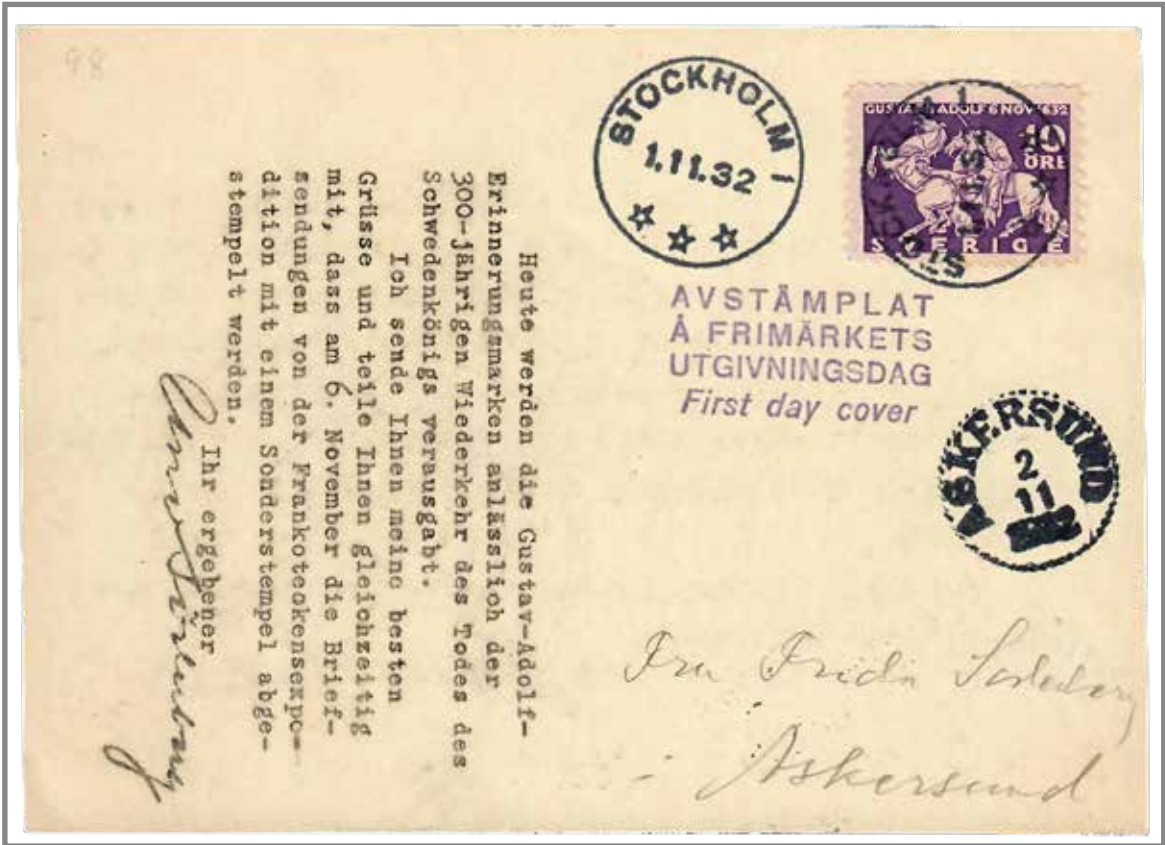 98
STOCKHOLM 1
1.11.32
GUSTAF II ADOLF 6 NOV 1632
10
ÖRE
SVERIGE
AVSTÄMPLAT
Å FRIMÄRKETS
UTGIVNINGSDAG
First day cover
ASKERSUND
2
11
Heute werden die Gustav-Adolf-
Erinnerungsmarken anlässlich der
300-jährigen Wiederkehr des Todes des
Schwedenkönigs verausgabt.
Ich sende Ihnen meine besten
Grüsse und teile Ihnen gleichzeitig
mit, dass am 6. November die Brief-
sendungen von der Frankoteckensexpo-
dition mit einem Sonderstempel abge-
stempelt werden.
Ihr ergebener
Fru Frida
Askersund